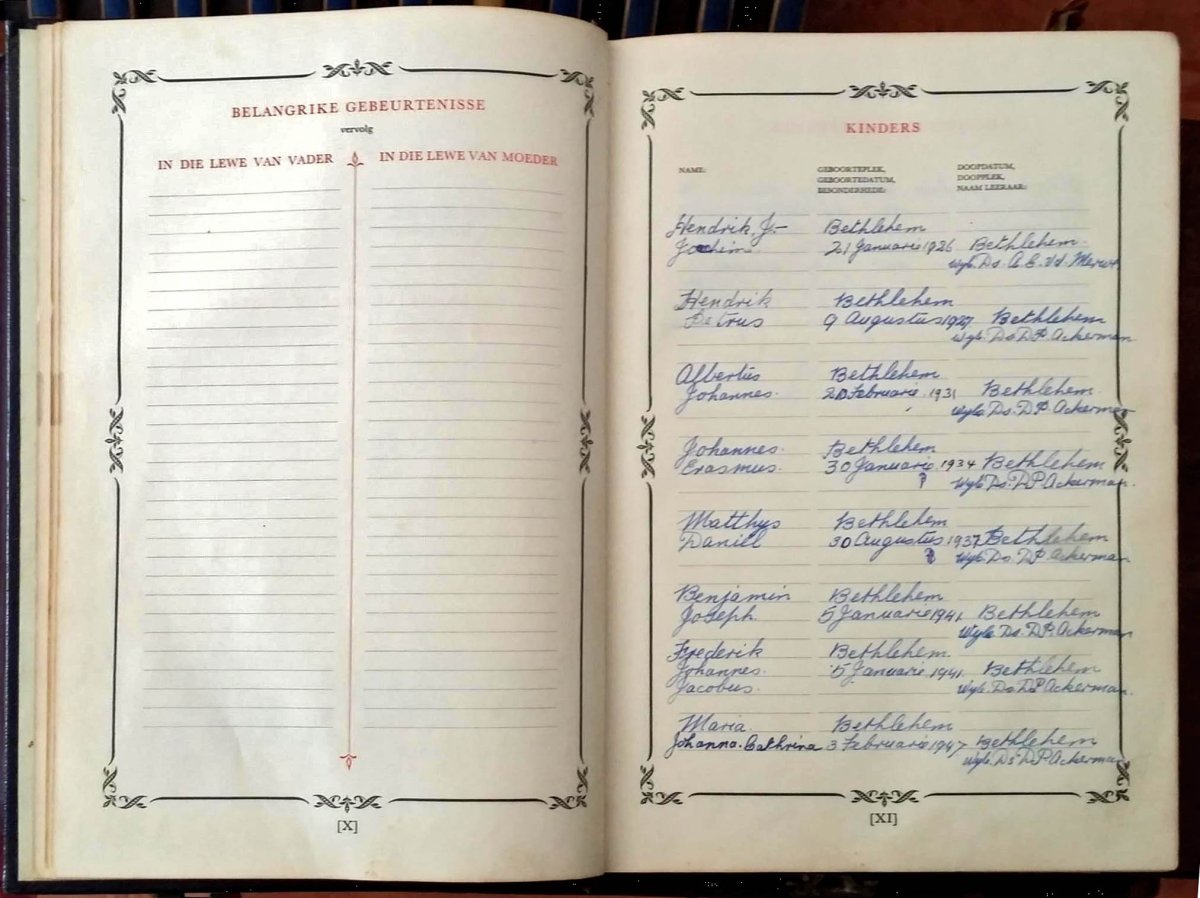 BELANGRIKE GEBEURTENISSE
vervolg
IN DIE LEWE VAN VADER
IN DIE LEWE VAN MOEDER
[X]
KINDERS
NAME:
GEBOORTEPLEK,
GEBOORTEDATUM,
BESONDERHEDE:
DOOPDATUM,
DOOPPLEK,
NAAM LEERAAR:
Hendrik J.- Bethlehem
Jochim 21 Januarie 1926 Bethlehem.
wyle Ds. A. E. vd. Merwe
Hendrik Bethlehem
Petrus 9 Augustus 1927 Bethlehem
Wyle. Ds. D P. Ackerman
Albertus Bethlehem
Johannes. Februarie. 1931 Bethlehem
Wyle Ds. D P. Ackerman
Johannes. Bethlehem
Erasmus. 30 Januarie 1934 Bethlehem
Wyle Ds. D P Ackerman.
Matthys Bethlehem
Daniël 30 Augustus 1937 Bethlehem
Wyle Ds. D P. Ackerman
Benjamin Bethlehem
Joseph. 5 Januarie 1941 Bethlehem
Wyle Ds. D P. Ackerman
Frederik Bethlehem.
Johannes. 5 Januarie 1941. Bethlehem
Jacobus. Wyle Ds. D P Ackerman.
Maria. Bethlehem
Johanna. Cathrina 3 Februarie 1947 Bethlehem
Wyle. Ds D P. Ackerman
[XI]